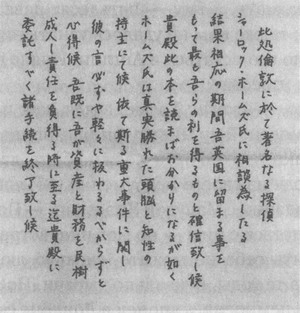 此処倫敦に於て著名なる探偵
シャーロック・ホームズ氏に相談為したる
結果相応の期間吾英国に留まる事を
もて最も吾らの利を得るものと確信致し候
貴殿此の本を読まばお分かりになるが如く
ホームズ氏は真実勝れた頭脳と知性の
持主にて候 依て斯る重大事件に関し
彼の言必ずや軽々に扱わるべからずと
心得候 吾既に吾が資産と財務を民樹
成人し責任を負得る時に至る迄貴殿に
委託すべく諸手続を終了致し候